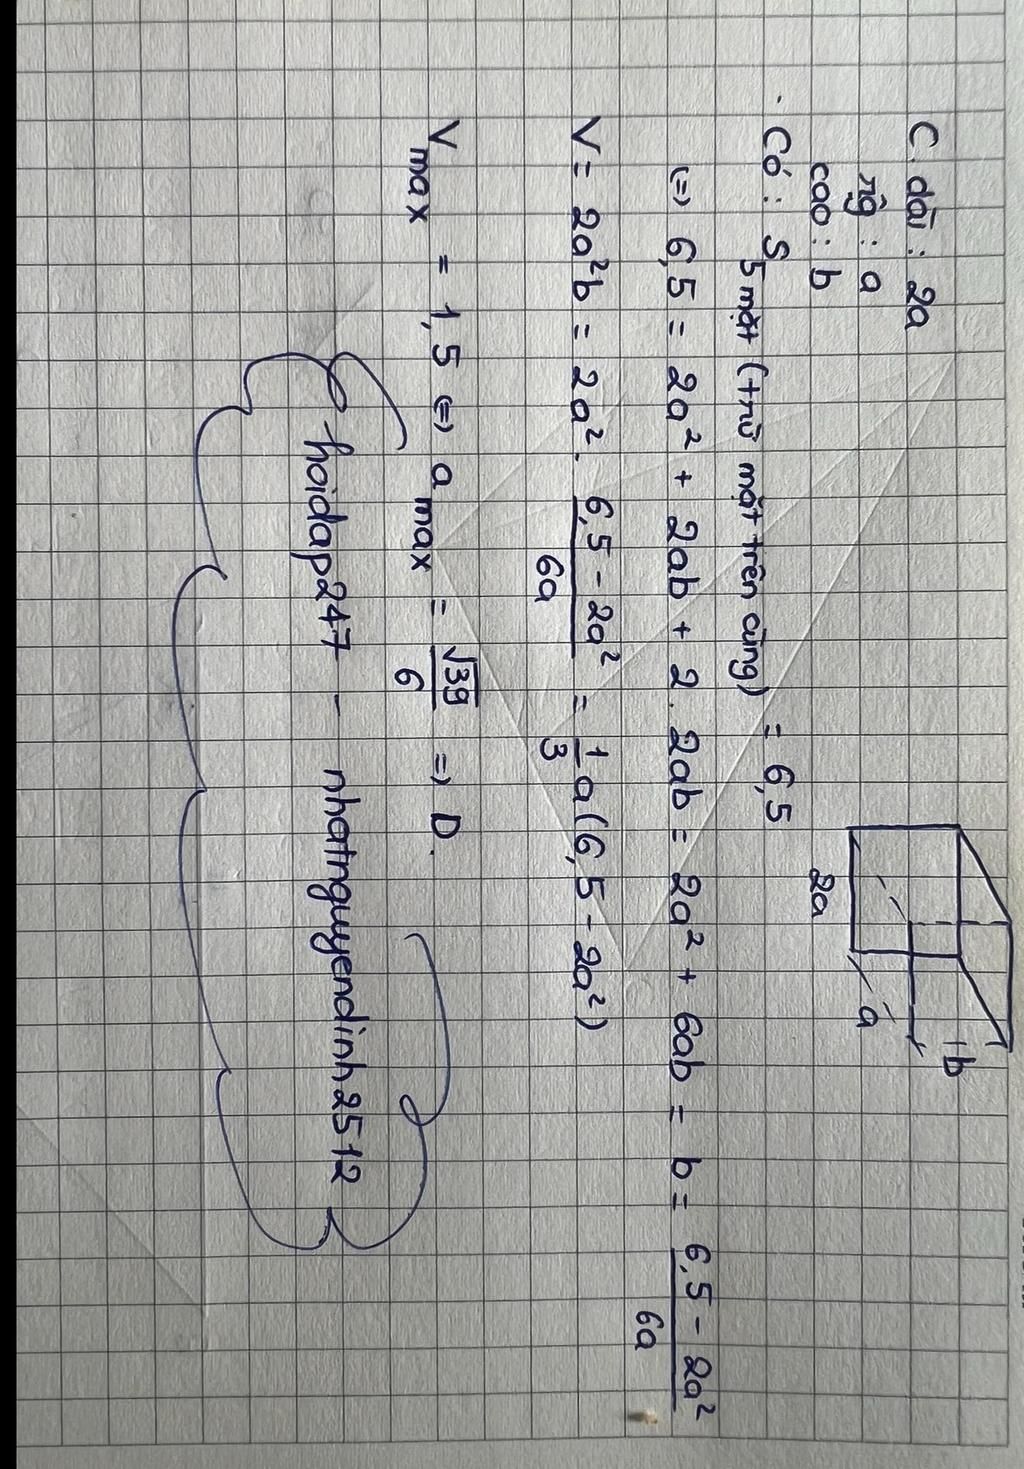 C. dài : 2a
rộg : a
cao : b
2a
a
b
Có : S 5 mặt (trừ mặt trên cùng) = 6,5
(=) 6,5 = 2a² + 2ab + 2. 2ab = 2a² + 6ab = b = (6,5 - 2a²)/6a
V = 2a²b = 2a². (6,5 - 2a²)/6a = 1/3 a(6,5 - 2a²)
Vmax = 1,5 (=) a max = √39/6 => D.
hoidap247 - nhatnguyendinh2512